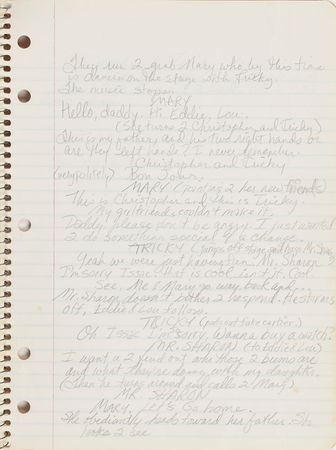 They run 2 grab Mary who by this time
is dancin on the stage with Tricky.
The music stops.
MARY
Hello, daddy. Hi Eddie, Lou.
(She turns 2 Christopher and Tricky)
This is my father, and his two right hands or
are they left hands? I never remember.
(Christopher and Tricky
(very politely) Bon Jour.
MARY (pointing 2 her new friends)
This is Christopher and this is Tricky.
My girlfriends couldn't make it.
Daddy please don't be angry. I just wanted
2 do something special 4 a change.
TRICKY (jumps off stage and hugs Mr. Sharon)
Yeah we were just havin fun. Mr. Sharon
I'm sorry Issac - that is cool isn't it. Cool.
See, Me & Mary go way back and
Mr. Sharon doesn't bother 2 respond. He storms
off, Eddie & Lou follow.
TRICKY
Oh Issac I'm sorry. Wanna buy a watch?
MR. SHARON (to Eddie & Lou)
I want u 2 find out who those 2 bums are
and what they're doing with my daughter.
(Then he turns around and calls 2 Mary)
MR. SHARON
Mary, Let's go home.
She obediently heads toward her father. She
looks 2 see